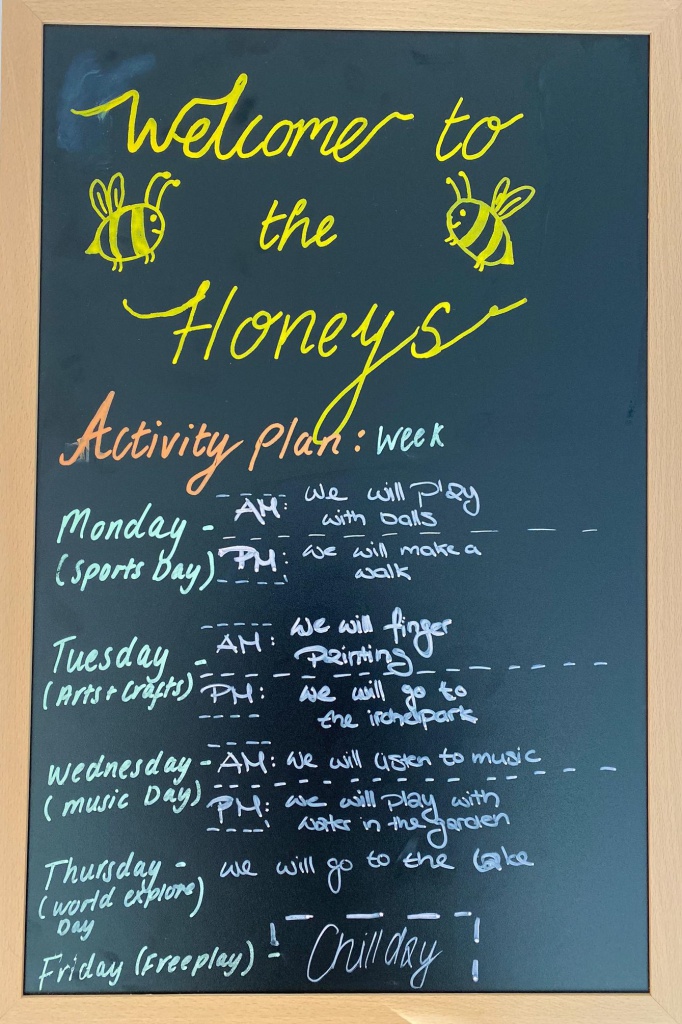 Welcome to
the
Honeys
Activity Plan: Week
Monday - AM: we will play
with balls
(Sports Day) PM: we will make a
walk
Tuesday - AM: we will finger
Painting
(Arts + Crafts) PM: we will go to
the irchelpark
Wednesday - AM: we will listen to music
(music Day) PM: we will play with
water in the garden
Thursday - we will go to the lake
(world explore)
Day
Friday (Freeplay) - Chillday